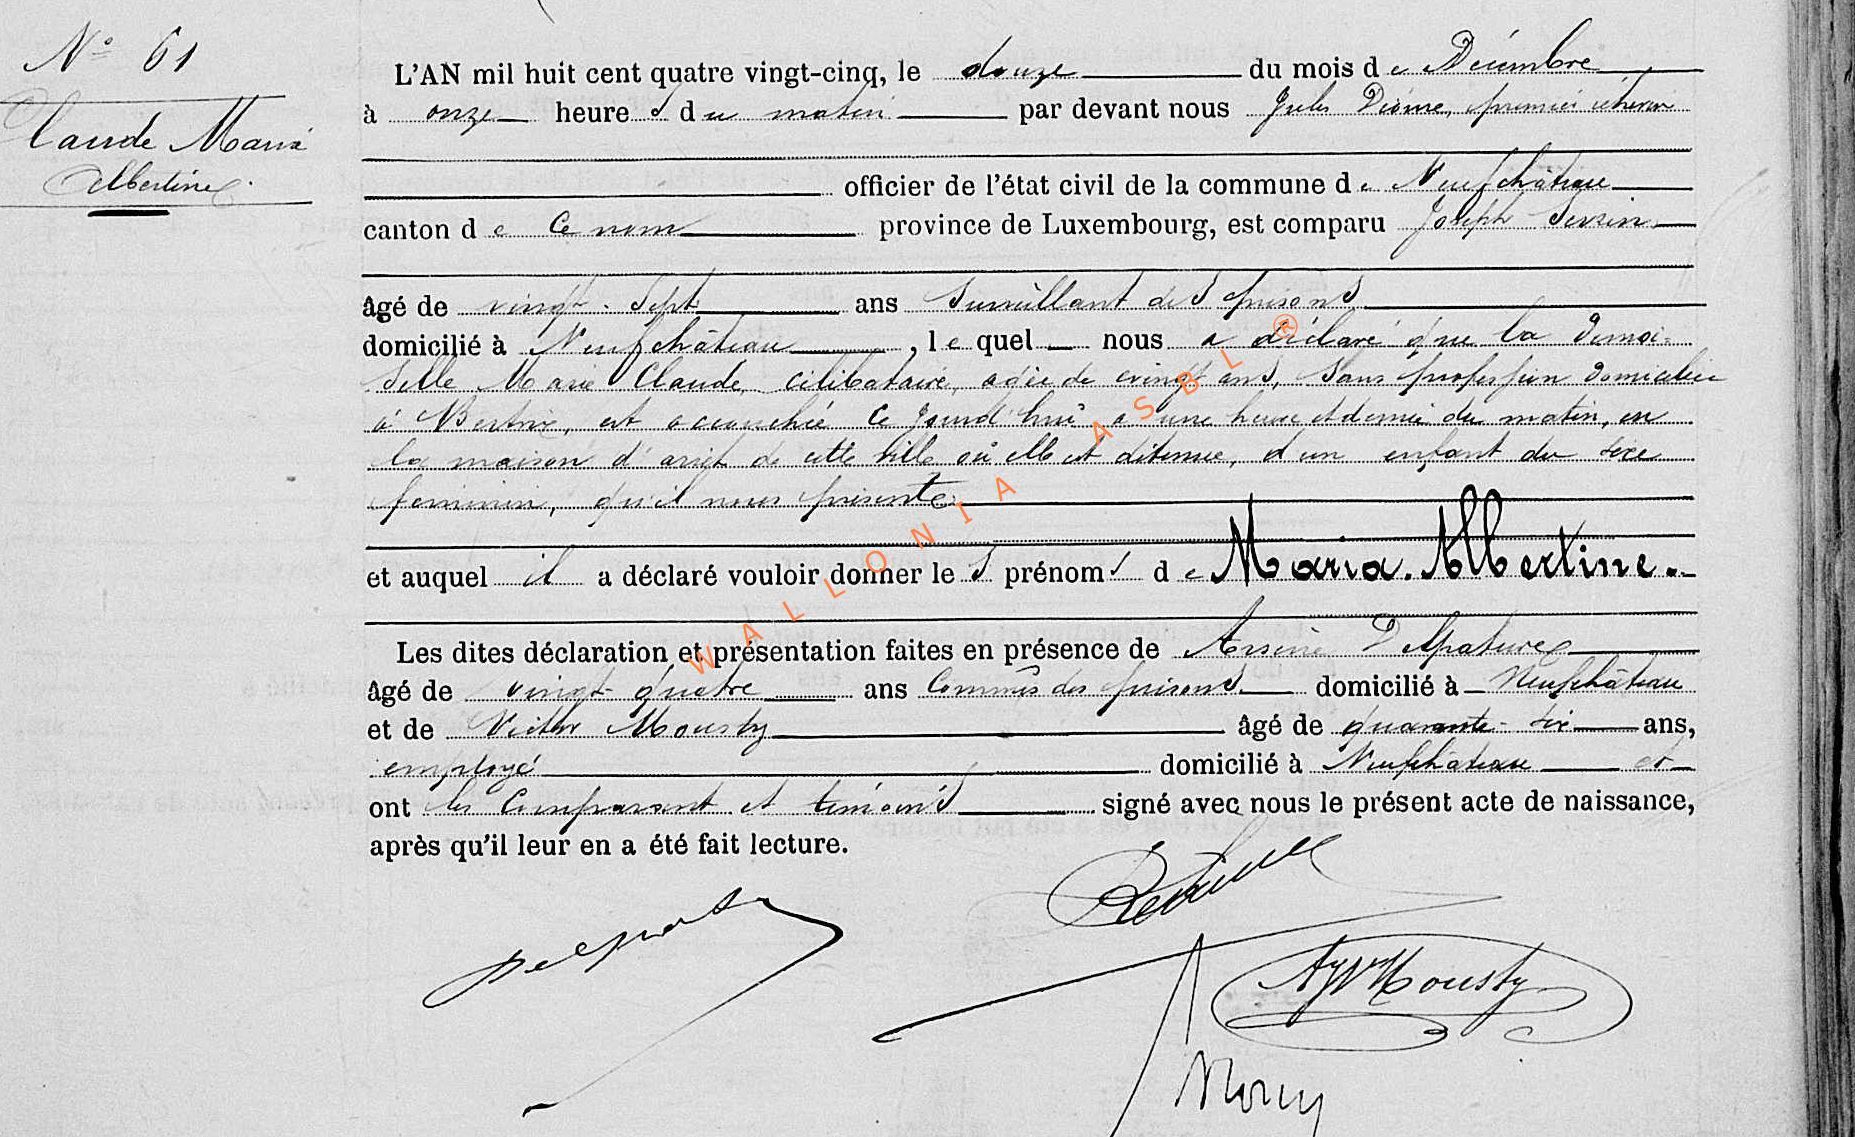 N° 61
Claude Maria
Albertine.
L'AN mil huit cent quatre vingt-cinq, le douze du mois de Décembre
à onze heures du matin par devant nous Jules premier échevin
officier de l'état civil de la commune de Neufchâteau
canton de ce nom province de Luxembourg, est comparu Joseph
âgé de vingt-sept ans surveillant des prisons
domicilié à Neufchâteau, lequel nous a déclaré que la Demoi-
selle Marie Claude, célibataire, agée de vingt ans, sans profession domiciliée
à Bertrix, est accouchée ce jourd'hui à une heure et demie du matin, en
la maison d'arrêt de cette ville où elle est détenue, d'un enfant du sexe
feminin, qu'il nous présente
et auquel il a déclaré vouloir donner les prénoms de Maria. Albertine.
Les dites déclaration et présentation faites en présence de Arsène Delpature
âgé de vingt-quatre ans Commis des prisons domicilié à Neufchâteau
et de Victor Mousty âgé de quarante-six ans,
employé domicilié à Neufchâteau et
ont les comparant et témoins signé avec nous le présent acte de naissance,
après qu'il leur en a été fait lecture.
Mousty
WALLONIA ASBL ®